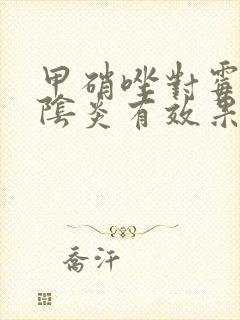 甲硝唑對霉
陰炎有效果
喬汗